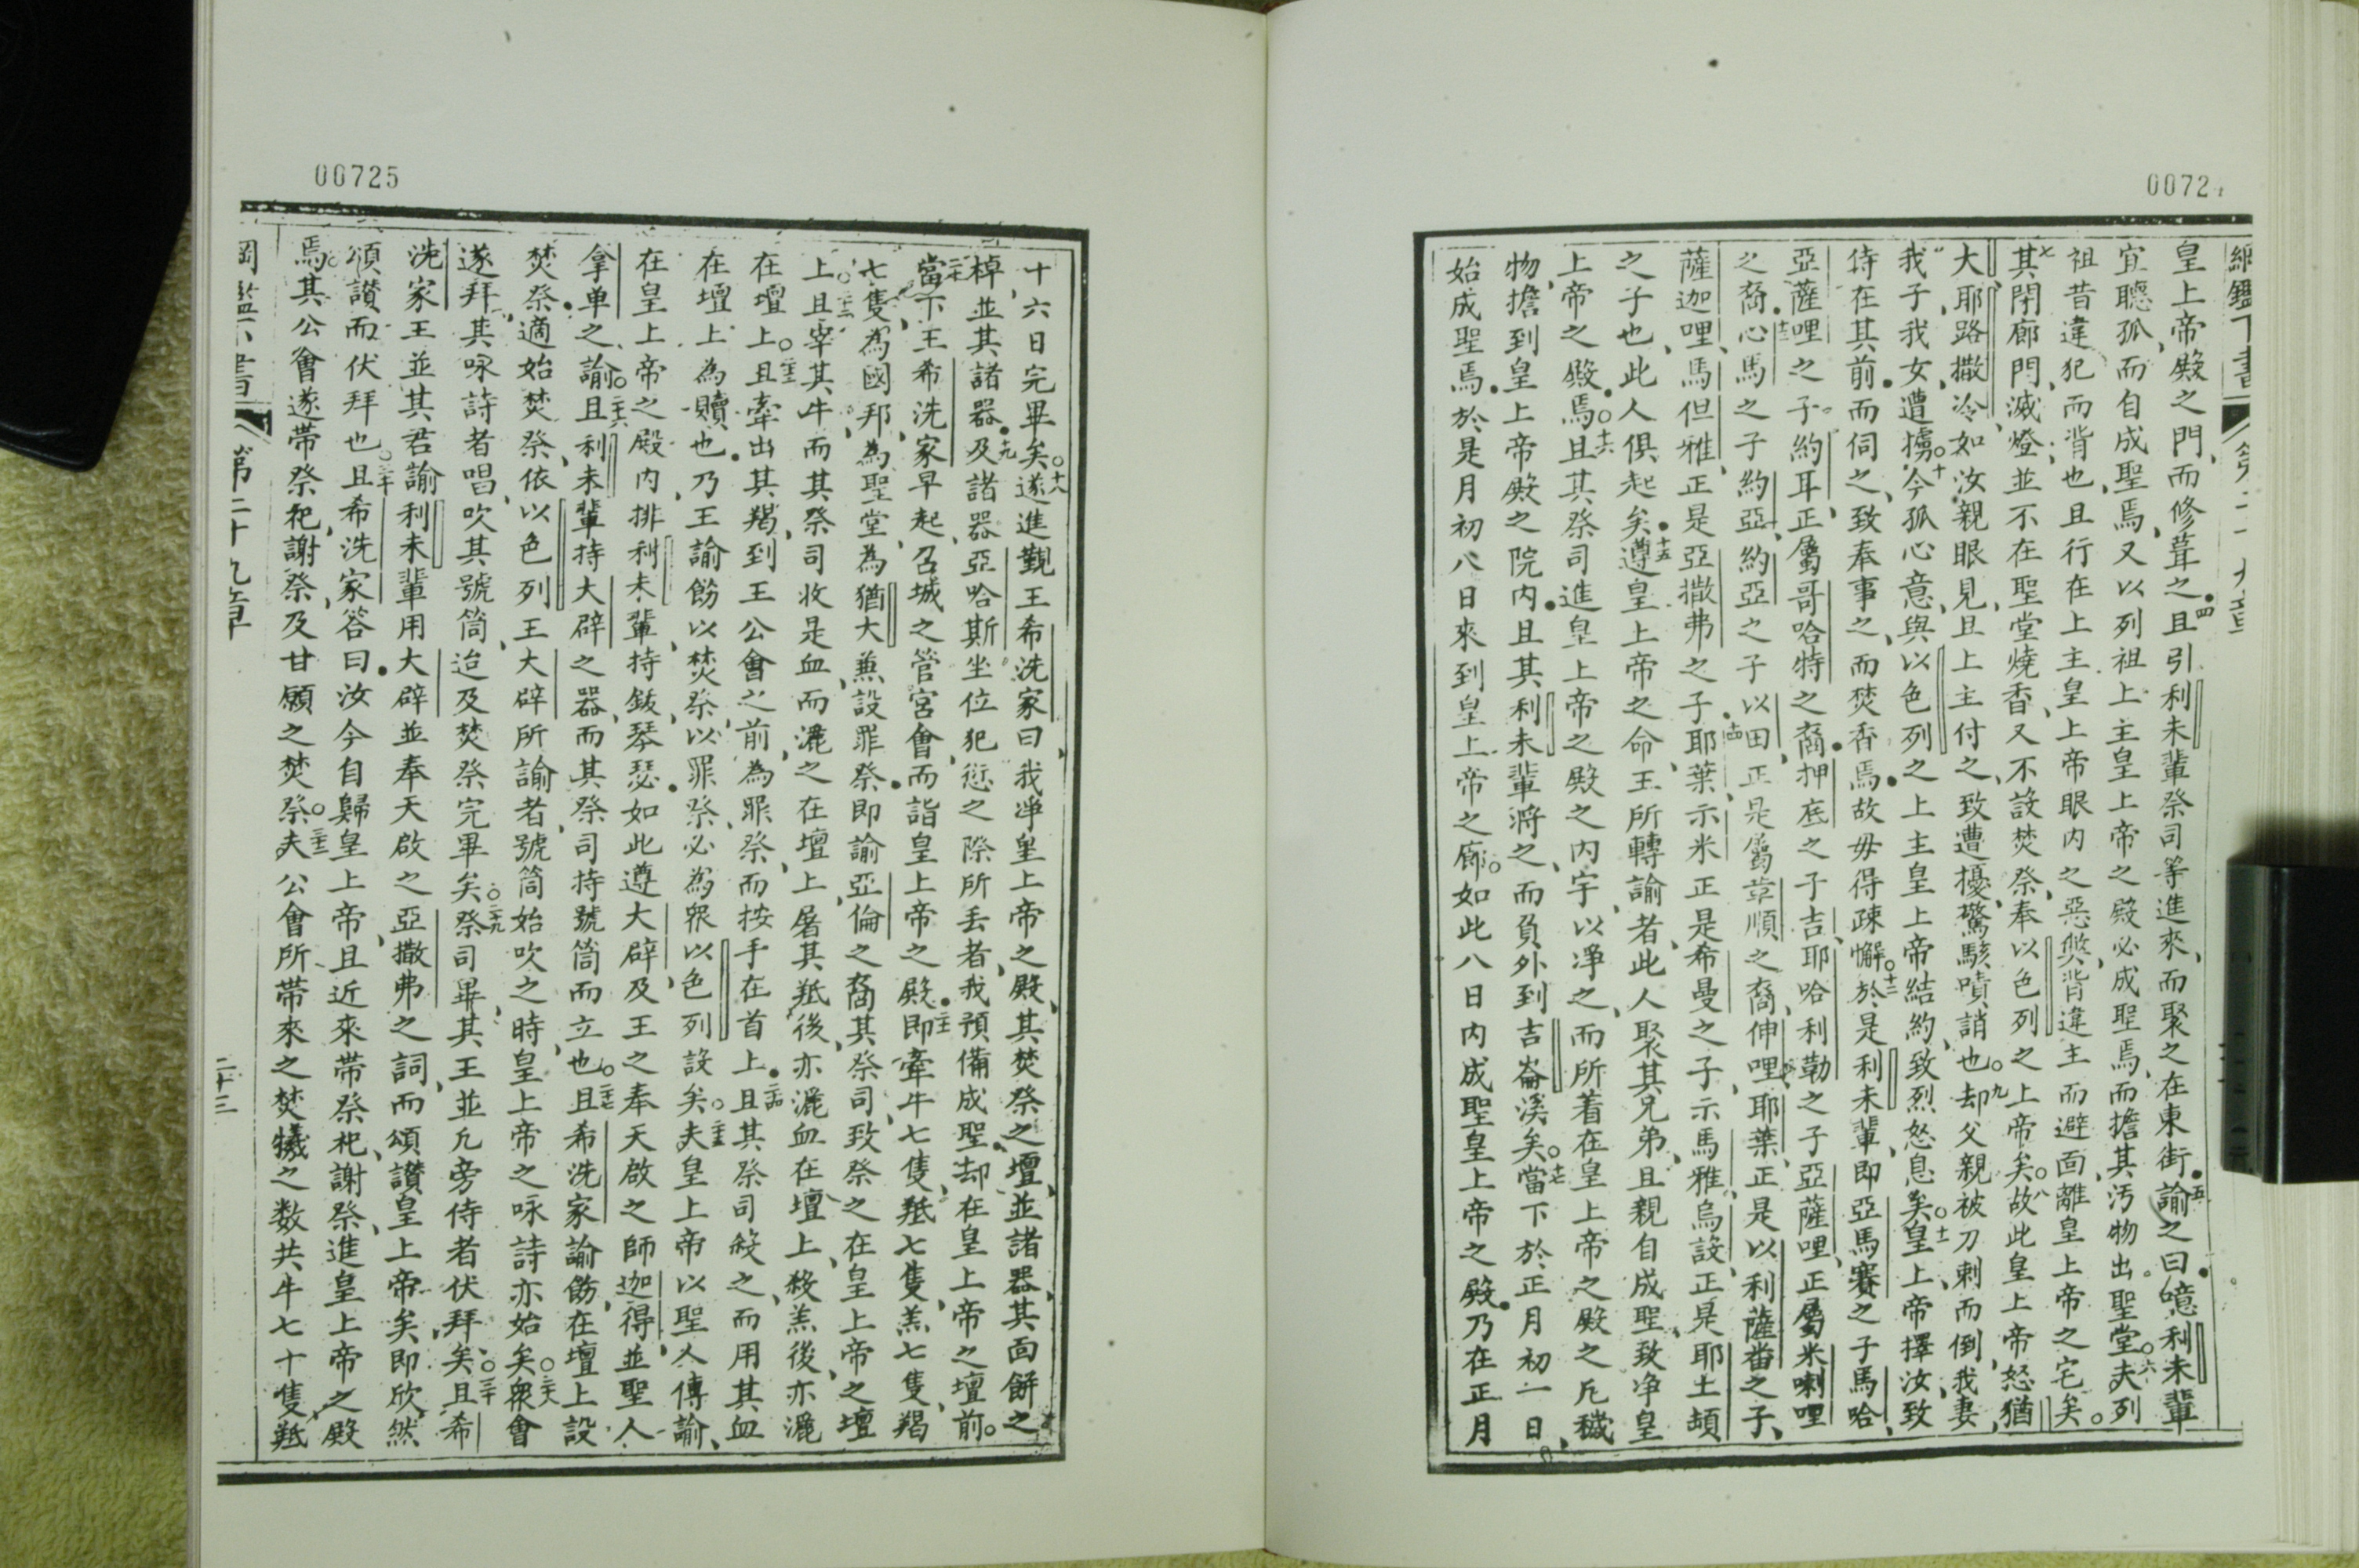 0072
綱鑑下書
皇上帝殿之門而修葺之四且引利未輩祭司等進來而聚之在東街五諭之曰噫利未輩
宜聽孤而自成聖焉又以列祖上主皇上帝之殿必成聖焉而擔其汚物出聖堂六夫列
祖昔違犯而背也且行在上主皇上帝眼內之惡獘背違主而避面離皇上帝之宅矣
七其閉廊門滅燈並不在聖堂燒香又不設焚祭奉以色列之上帝矣八故此皇上帝怒猶
大耶路撒冷如汝親眼見且上主付之致遭擾驚駭嘖誚也九却父親被刀刺而倒我妻
我子我女遭擄十今孤心意與以色列之上主皇上帝結約致烈怒息矣十一皇上帝擇汝致
侍在其前而伺之致奉事之而焚香焉故毋得疎懈十二於是利未輩即亞馬賽之子馬哈
亞薩哩之子約耳正屬哥哈特之裔押底之子吉耶哈利勒之子亞薩哩正屬米喇哩
之裔十三心馬之子約亞約亞之子以田正是屬革順之裔伸哩耶葉正是以利薩畨之子
薩迦哩馬但雅正是亞撒弗之子十四耶葉示米正是希曼之子示馬雅烏設正是耶土頓
之子也此人俱起矣十五遵皇上帝之命王所轉諭者此人聚其兄弟且親自成聖致淨皇
上帝之殿焉十六且其祭司進皇上帝之殿之內宇以淨之而所着在皇上帝之殿之凡穢
物擔到皇上帝殿之院內且其利未輩將之而負外到吉崙溪矣十七當下於正月初一日
始成聖焉於是月初八日來到皇上帝之廊如此八日內成聖皇上帝之殿乃在正月
00725
十六日完畢矣十八遂進覲王希洗家曰我淨皇上帝之殿其焚祭之壇並諸器其面餅之
棹並其諸器十九及諸器亞哈斯坐位犯愆之際所丟者我預備成聖却在皇上帝之壇前
二十當下王希洗家早起召城之管宮會而詣皇上帝之殿二十一即牽牛七隻羝七隻羔七隻羯
七隻為國邦為聖堂為猶大兼設罪祭即諭亞倫之裔其祭司致祭之在皇上帝之壇
上二十二且宰其牛而其祭司收是血而灑之在壇上屠其羝後亦灑血在壇上殺羔後亦灑
在壇上二十三且牽出其羯到王公會之前為罪祭而按手在首上二十四且其祭司殺之而用其血
在壇上為贖也乃王諭飭以焚祭以罪祭必為衆以色列設矣二十五夫皇上帝以聖人傳諭
在皇上帝之殿內排利未輩持鈸琴瑟如此遵大辟及王之奉天啟之師迦得並聖人
拿單之諭二十六且利未輩持大辟之器而其祭司持號筒而立也二十七且希洗家諭飭在壇上設
焚祭適始焚祭依以色列王大辟所諭者號筒始吹之時皇上帝之咏詩亦始矣二十八衆會
遂拜其咏詩者唱吹其號筒迨及焚祭完畢矣二十九祭司畢其王並凡旁侍者伏拜矣三十且希
洗家王並其君諭利未輩用大辟並奉天啟之亞撒弗之詞而頌讃皇上帝矣即欣然
頌讃而伏拜也三十一且希洗家答曰汝今自歸皇上帝且近來帶祭祀謝祭進皇上帝之殿
焉其公會遂帶祭祀謝祭及甘願之焚祭三十二夫公會所帶來之焚犧之数共牛七十隻羝
綱鑑下書 第二十九章 二十三